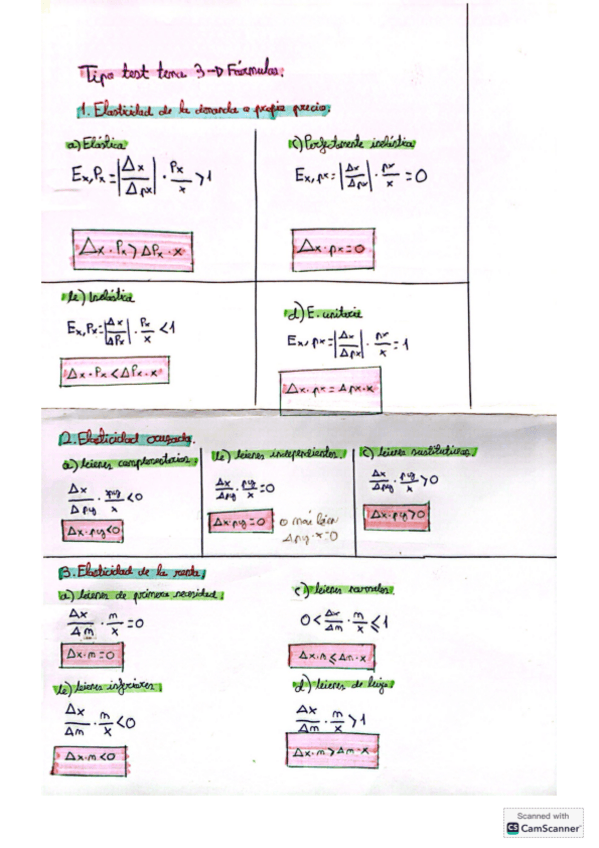 Tipo test tema 3 → Fórmulas.
1. Elasticidad de la demanda a propio precio.
a) Elástica
Ex,Px = |Δx/ΔPx| · Px/x > 1
Δx · Px > ΔPx · x
c) Perfectamente inelástica
Ex,px = |Δx/Δpx| · px/x = 0
Δx · px = 0
b) Inelástica
Ex,Px = |Δx/ΔPx| · Px/x < 1
Δx · Px < ΔPx · x
d) E. unitaria
Ex,px = |Δx/Δpx| · px/x = 1
Δx · px = Δpx · x
2. Elasticidad cruzada.
a) bienes complementarios.
Δx/Δpy · py/x < 0
Δx · py < 0
b) bienes independientes.
Δx/Δpy · py/x = 0
Δx · py = 0
o más bien
Δpy · x = 0
c) bienes sustitutivos.
Δx/Δpy · py/x > 0
Δx · py > 0
3. Elasticidad de la renta.
a) bienes de primera necesidad.
Δx/Δm · m/x = 0
Δx · m = 0
c) bienes normales.
0 < Δx/Δm · m/x ≤ 1
Δx · m ≤ Δm · x
b) bienes inferiores.
Δx/Δm · m/x < 0
Δx · m < 0
d) bienes de lujo.
Δx/Δm · m/x > 1
Δx · m > Δm · x
Scanned with
CS CamScanner